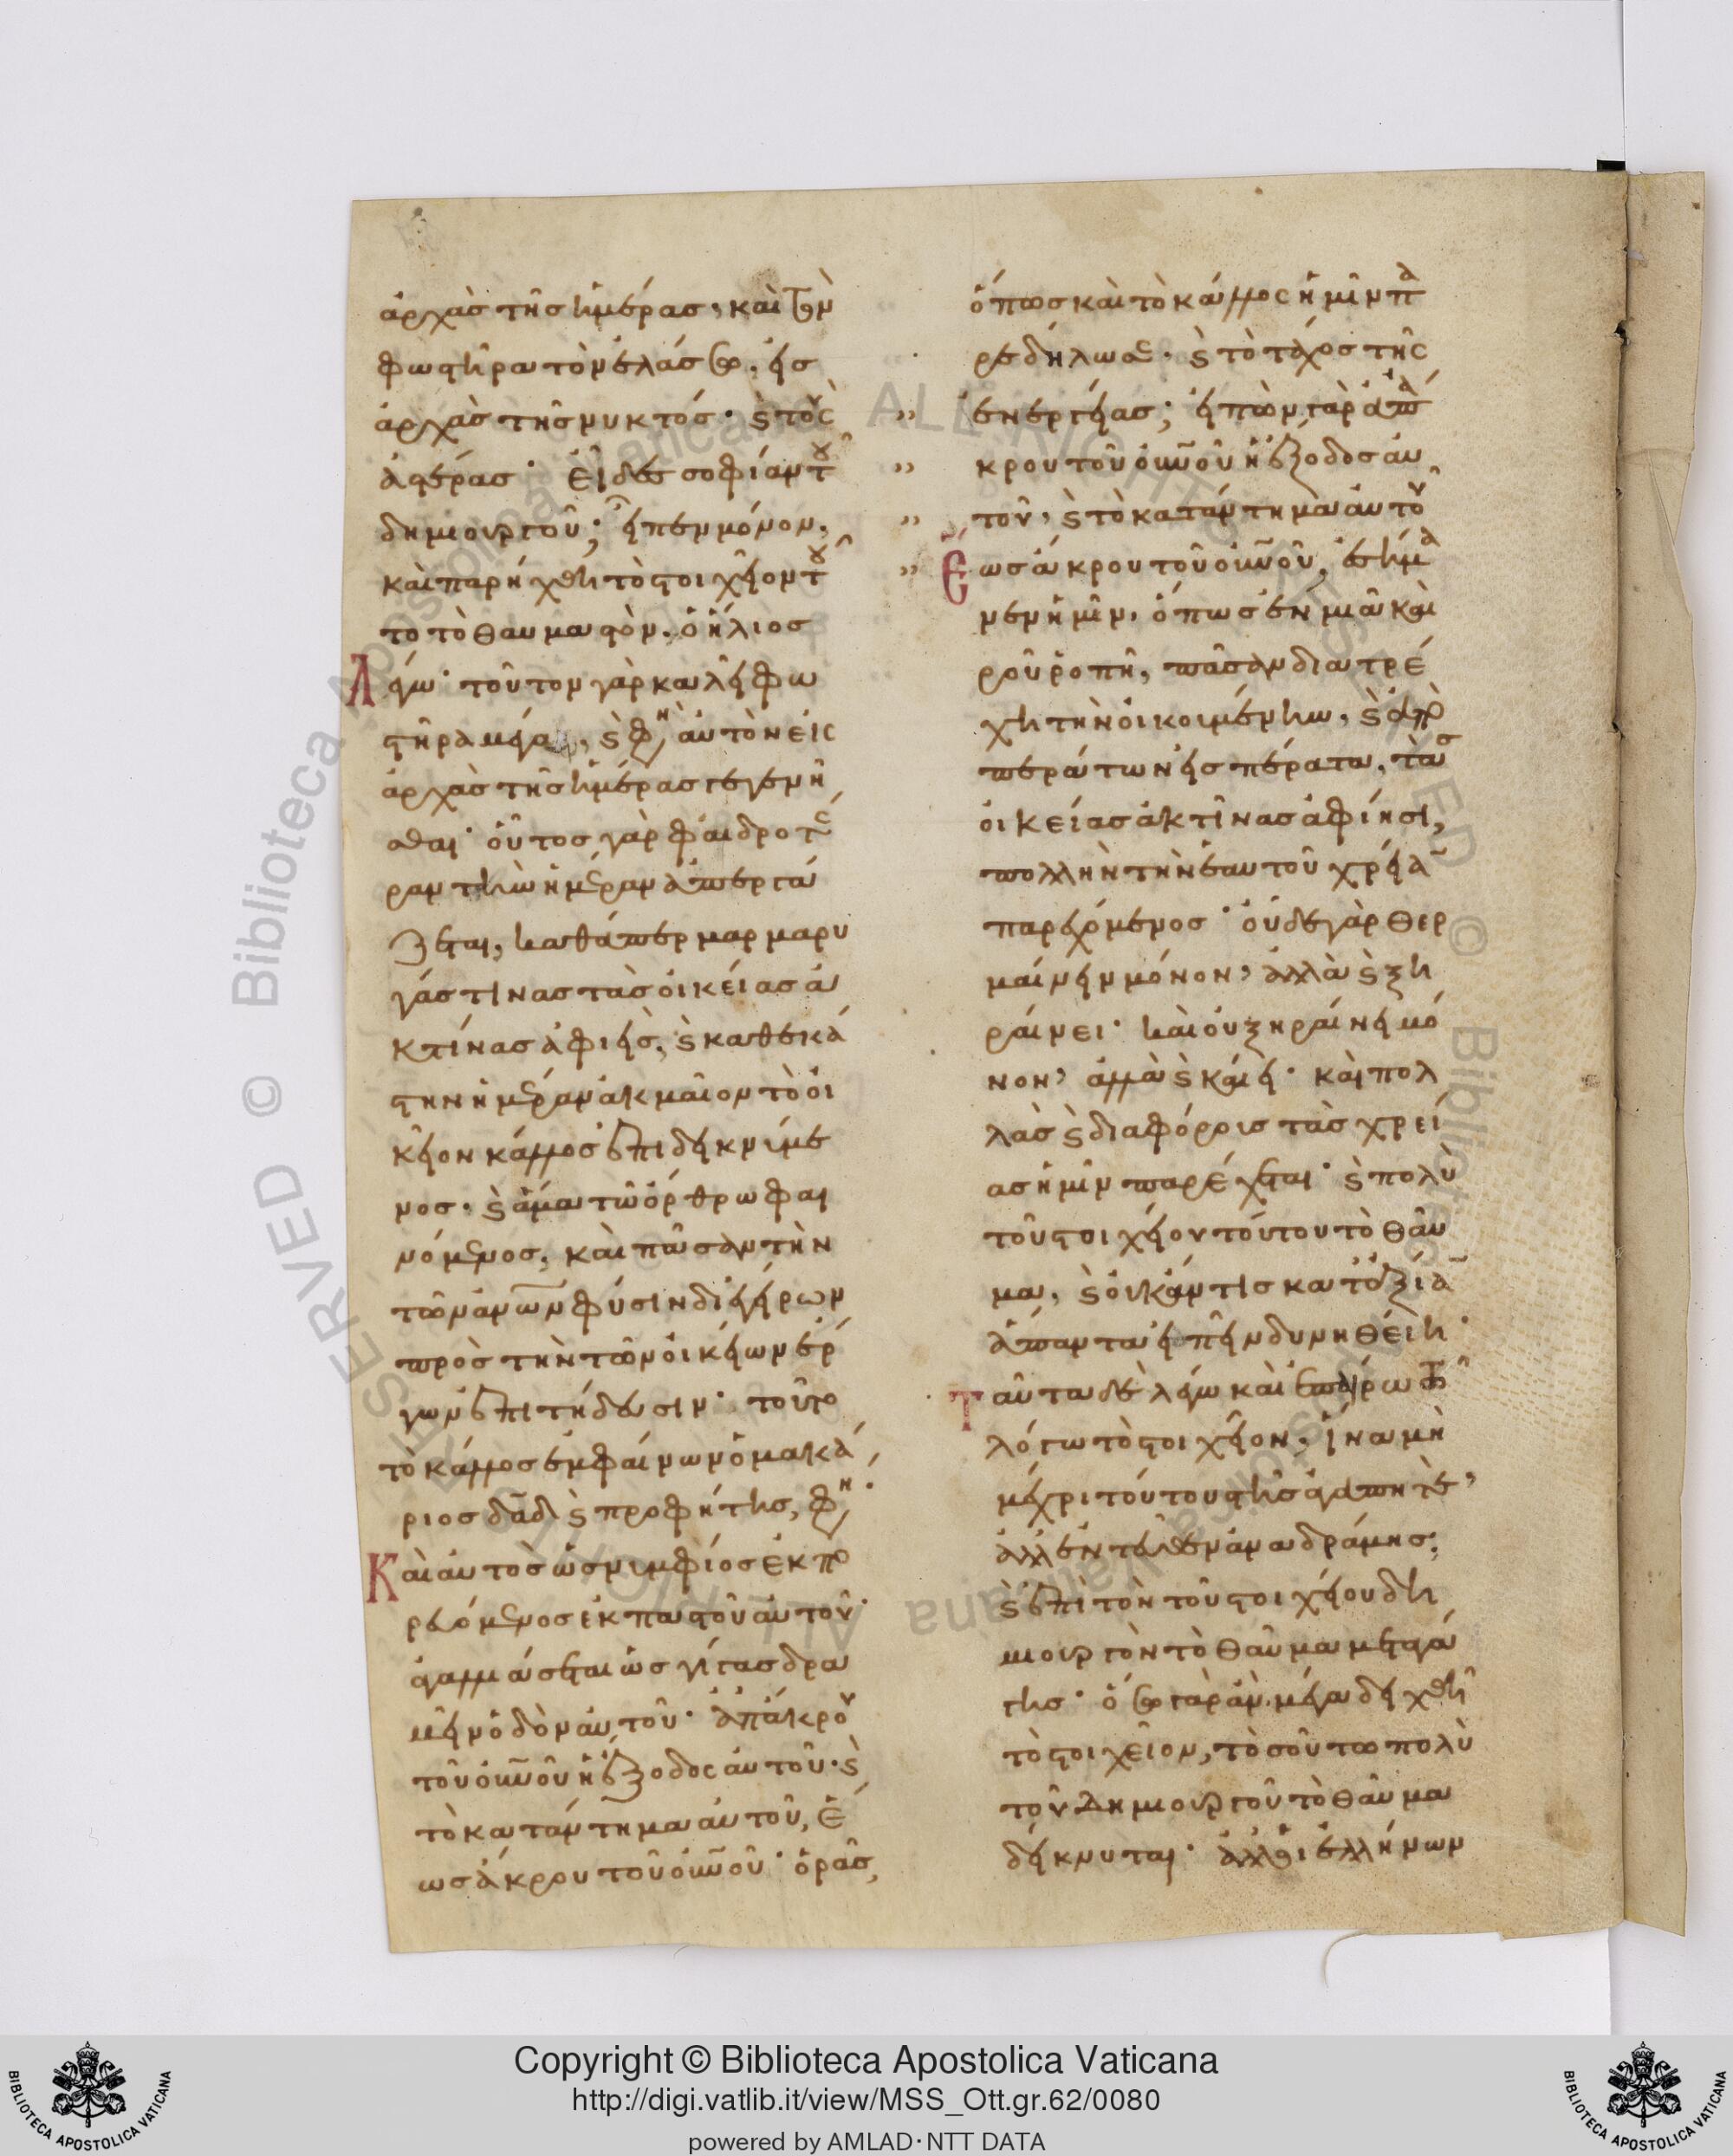 ἀρχὰς τῆς ἡμέρας, καὶ τὸν
φωστῆρα τὸν ἐλάσσω, εἰς
ἀρχὰς τῆς νυκτός· καὶ τοὺς
ἀστέρας· εἶδες σοφίαν τοῦ
δημιουργοῦ; εἶπεν μόνον,
καὶ παρήχθη τὸ στοιχεῖον τοῦ
το τὸ θαυμαστὸν, ὁ ἥλιος
λέγω· τοῦτον γὰρ καλεῖ φω
στῆρα μέγαν, καὶ φησὶν αὐτὸν εἰς
ἀρχὰς τῆς ἡμέρας γεγενῆ
σθαι· οὗτος γὰρ φαιδροτέ
ραν τὴν ἡμέραν ἀπεργά
ζεται, καθάπερ μαρμαρυ
γάς τινας τὰς οἰκείας ἀ
κτίνας ἀφιεὶς, καὶ καθεκά
στην ἡμέραν ἀκμαῖον τὸ οἰ
κεῖον κάλλος ἐπιδεικνύμε
νος· καὶ ἅμα τῷ ὄρθρω φαι
νόμενος, καὶ πᾶσαν τὴν
τῶν ἀνων φύσιν διεγείρων
πρὸς τὴν τῶν οἰκείων ἔρ
γων ἐπιτήδευσιν· τοῦτο
τὸ κάλλος ἐμφαίνων ὁ μακά
ριος δαδ καὶ προφήτης, φησιν·
Καὶ αὐτὸς ὡς νυμφίος ἐκπο
ρευόμενος ἐκ παστοῦ αὐτοῦ·
ἀγαλλιάσεται ὡς γίγας δρα
μεῖν ὁδὸν αὐτοῦ· ἀπ ἄκρου
τοῦ οὐνοῦ ἡ ἔξοδος αὐτοῦ· καὶ
τὸ κατάντημα αὐτοῦ, ἕ
ως ἄκρου τοῦ οὐνοῦ· ὁρᾶς,
ὅπως καὶ τὸ κάλλος ἡμῖν πα
ρεδήλωσε· καὶ τὸ τάχος τῆς
ἐνεργείας; εἰπὼν γὰρ ἀπ ἄ
κρου τοῦ οὐνοῦ ἡ ἔξοδος αὐ
τοῦ, καὶ τὸ κατάντημα αὐτοῦ
Ἕως ἄκρου τοῦ οὐνοῦ, ἐσήμα
νεν ἡμῖν, ὅπως ἐν μιᾶ και
ροῦ ῥοπῆ, πᾶσαν διατρέ
χη τὴν οἰκουμένην, καὶ ἀπὸ
περάτων εἰς πέρατα, τὰς
οἰκείας ἀκτῖνας ἀφίησι,
πολλὴν τὴν ἑαυτοῦ χρείαν
παρεχόμενος· οὐδε γὰρ θερ
μαίνει μόνον, ἀλλὰ καὶ ξη
ραίνει· καὶ οὐ ξηραίνει μό
νον, ἀλλὰ καὶ καίει· καὶ πολ
λὰς καὶ διαφόρους τὰς χρεί
ας ἡμῖν παρέχεται· καὶ πολὺ
τοῦ στοιχείου τούτου τὸ θαῦ
μα, καὶ οὐκ ἄν τις κατ ἀξίαν
ἅπαντα εἰπεῖν δυνηθείη·
Ταῦτα δὲ λέγω καὶ ἐπαίρω τῶ
λόγω τὸ στοιχεῖον, ἵνα μὴ
μέχρι τούτου στῆς ἀγαπητὲ,
ἀλλ ἐντεῦθεν ἀναδράμης,
καὶ ἐπὶ τὸν τοῦ στοιχείου δη
μιουργὸν τὸ θαῦμα μεταγά
γης· ὅσω γὰρ ἂν μέγα δειχθῆ
τὸ στοιχεῖον, τοσούτω πολὺ
τοῦ δημιουργοῦ τὸ θαῦμα
δείκνυται· ἀλλ οἱ ἑλλήνων
Copyright © Biblioteca Apostolica Vaticana
http://digi.vatlib.it/view/MSS_Ott.gr.62/0080
powered by AMLAD·NTT DATA